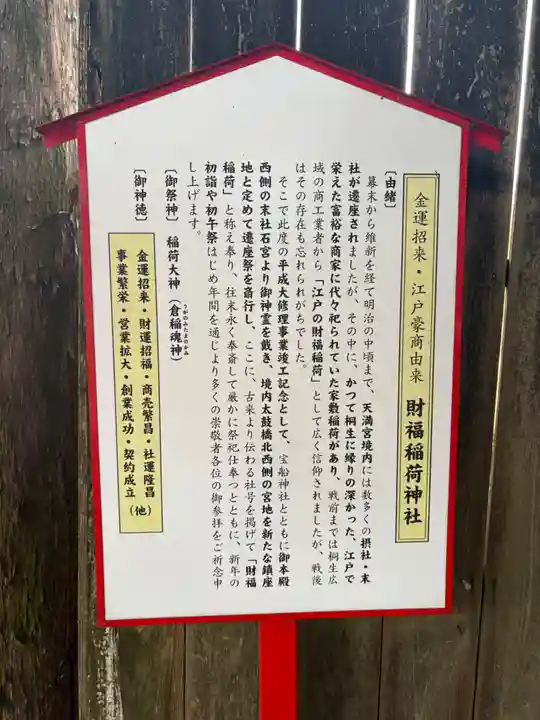 金運招来・江戸豪商由来 財福稲荷神社
〔由緒〕
幕末から維新を経て明治の中頃まで、天満宮境内には数多くの摂社・末
社が遷座されましたが、その中に、かつて桐生に縁りの深かった、江戸で
栄えた富裕な商家に代々祀られていた家敷稲荷があり、戦前までは桐生広
域の商工業者から「江戸の財福稲荷」として広く信仰されましたが、戦後
はその存在も忘れられがちでした。
そこで此度の平成大修理事業竣工記念として、宝船神社とともに御本殿
西側の末社石宮より御神霊を戴き、境内太鼓橋北西側の宮地を新たな鎮座
地と定めて遷座祭を斎行し、ここに、古来より伝わる社号を掲げて「財福
稲荷」と称え奉り、往末永く奉斎して厳かに祭祀仕奉つとともに、新年の
初詣や初午祭はじめ年間を通じより多くの崇敬者各位の御参拝をご祈念申
し上げます。
〔御祭神〕 稲荷大神(倉稲魂神)
うがのみたまのかみ
〔御神徳〕
金運招来・財運招福・商売繁昌・社運隆昌
事業繁栄・営業拡大・創業成功・契約成立(他)